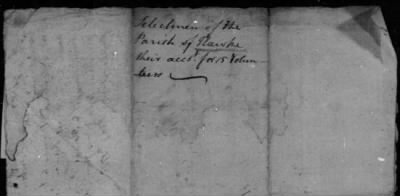 Selectmen of the
Parish of Hawke
their acct. for 15 Volun
teers